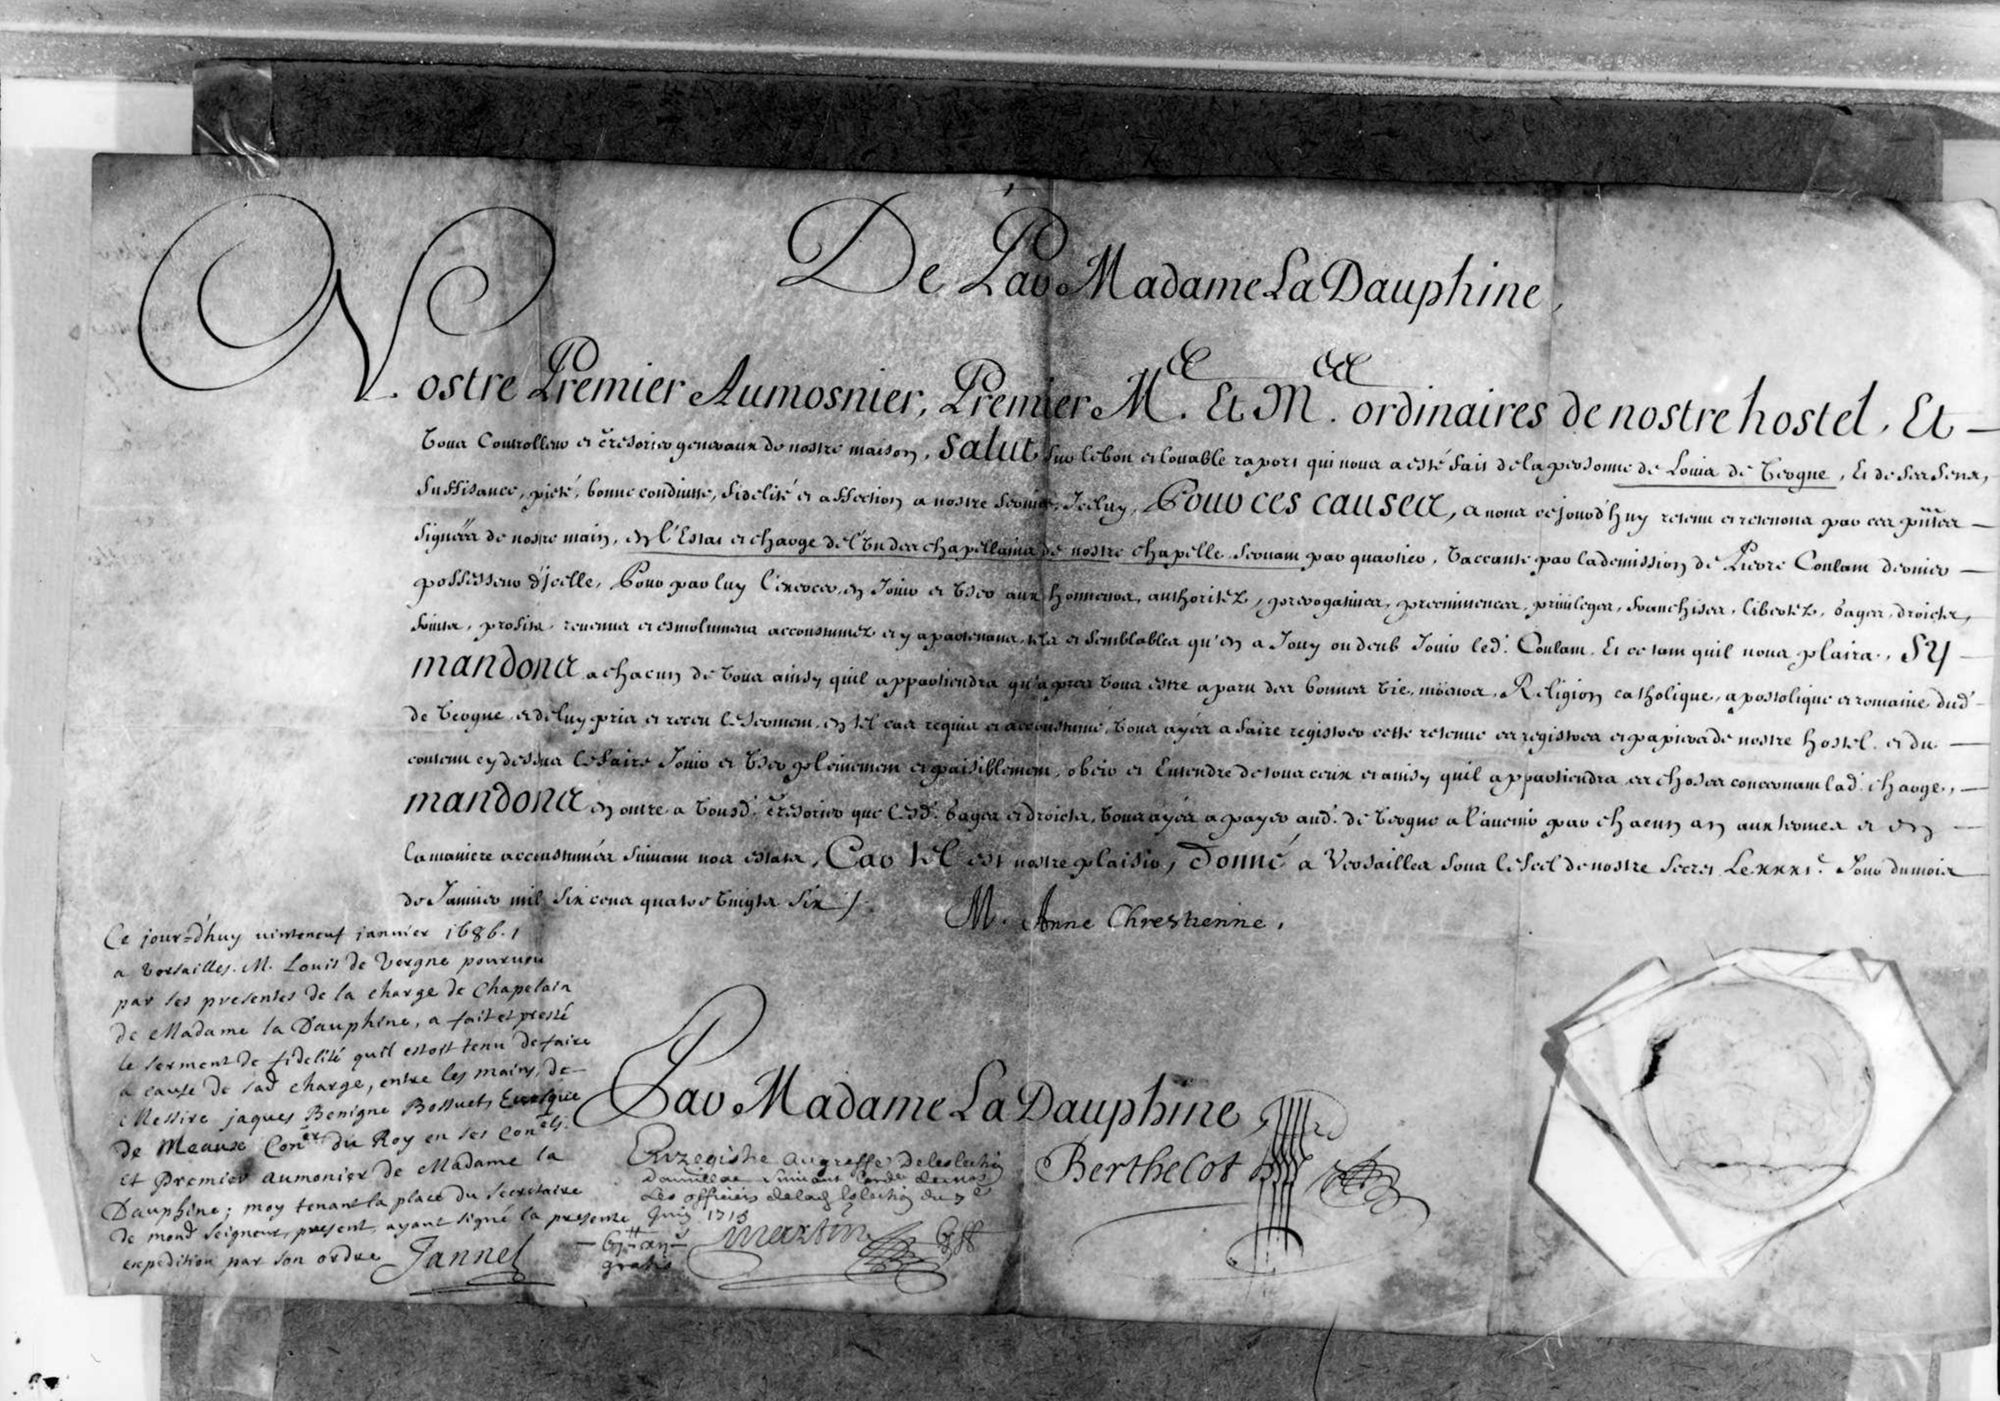 De Par Madame La Dauphine,
Nostre Premier Aumosnier, Premier Me. Et Me. ordinaires de nostre hostel, Et
Vous Controlleur et Tresorier generaux de nostre maison, Salut sur le bon et louable raport qui nous a esté fait de la personne de Louis de Vergne, Et de ses sens,
suffisance, pieté, bonne conduitte, fidelité et affection a nostre service, Icelluy, Pour ces causes, a nous cejourd'huy retenu et retenons par ces pñtes
signées de nostre main, en l'Estat et charge de l'Un des chapellains de nostre chapelle servant par quartier, Vaccante par la demission de Pierre Coulam dernier
possesseur d'Icelle, Pour par luy l'exercer, en Jouir et User aux honneurs, authoritez, prerogatives, preeminences, privileges, franchises, libertez, gages, droicts,
fruits, profits, revenus et esmolumens accoustumez et y apartenans, tels et semblables qu'en a Jouy ou deub Jouir led. Coulam, Et ce tant quil nous plaira, Sy
mandons a chacun de Vous ainsy quil appartiendra qu'apres Vous estre aparu des bonnes Vie, mœurs, Religion catholique, apostolique et romaine dud.
de Vergne, et de luy pris et receu le serment en tel cas requis et accoustumé, Vous ayés a faire registrer cette retenue es registres et papiers de nostre hostel, et du
contenu cy dessus le faire Jouir et User plainement et paisiblement, obeir et Entendre de tous ceux et ainsy quil appartiendra es choses concernant lad. charge,
mandons en outre a Vousd. Tresorier que lesd. gages et droicts, Vous ayés a payer aud. de Vergne a l'avenir par chacun an aux termes et en
la maniere accoustumés suivant nos estats, Car tel est nostre plaisir, Donné a Versailles sous le scel de nostre secret Le xxxie. Jour du mois
de Janvier mil six cens quatre vingts six /.
M. Anne Chrestienne.
Ce jour=d'huy vintneuf janvier 1686.
a versailles. M. Louis de Vergne pourveu
par ses presentes de la charge de Chapelain
de Madame la Dauphine, a fait et presté
le serment de fidelité quil estoit tenu de faire
a cause de sad charge, entre les mains de
Messire jaques Benigne Bossuet, Evesque
de Meaux Coner du Roy en ses Conels.
et Premier aumonier de Madame la
Dauphine; moy tenant la place du secretaire
de mond seigneur, present, ayant signé la presente
expedition par son ordre Jannel
Par Madame La Dauphine,
Berthelot
Enregistre au greffe de lelection
suivant
Les officiers de lad Eslection du 7e
Juin 1713
martin
gratis